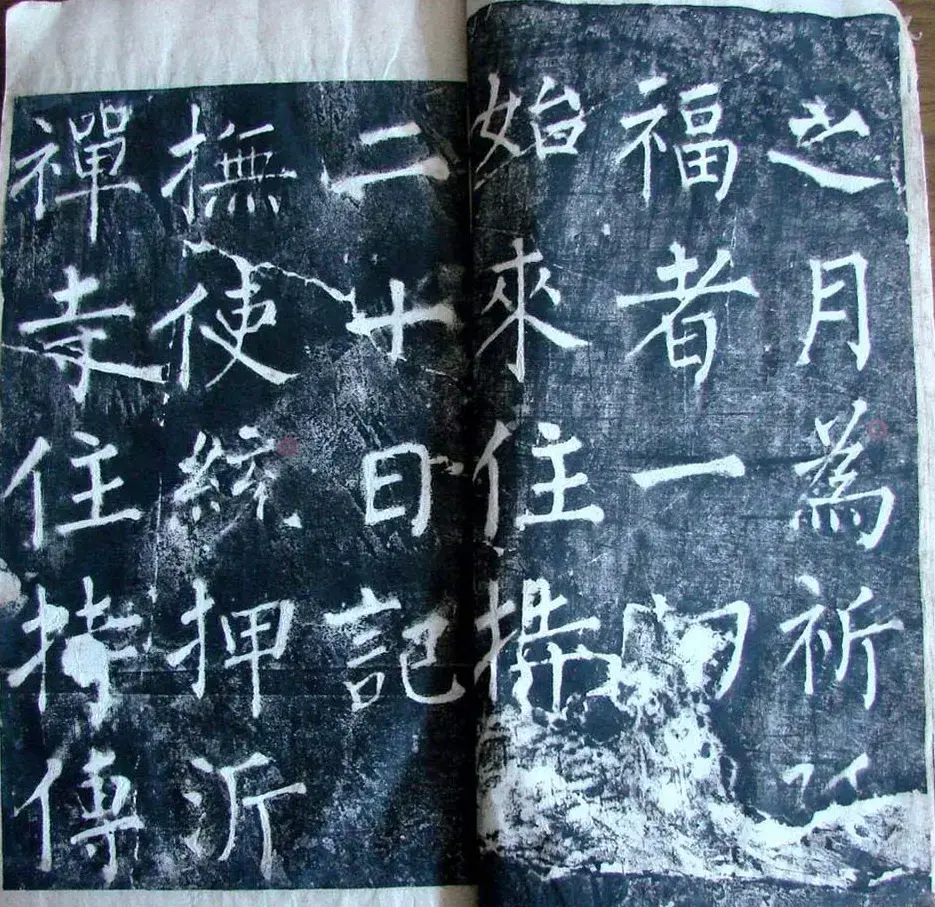 之月為祈
福者一切
始來住攝
二十日記
撫使統押沂
禪寺住持傳